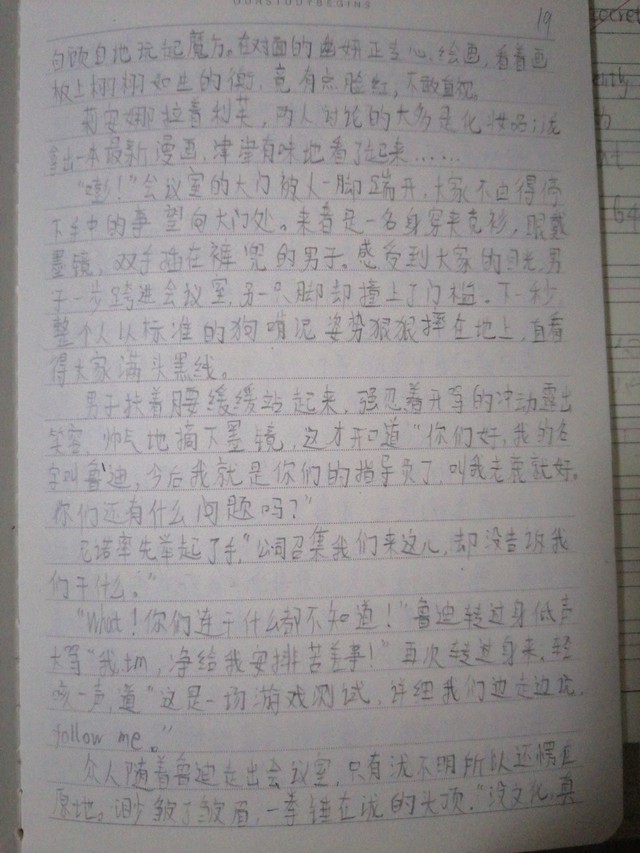 OURSTUDYBEGINS
19
自顾自地玩起魔方。在对面的幽妍正专心绘画，看着画
板上栩栩如生的衡，竟有点脸红，不敢直视。
莉安娜拉着利芙，两人讨论的大多是化妆品；泷
拿出一本最新漫画，津津有味地看了起来……
“嘭！”会议室的大门被人一脚踹开，大家不由得停
下手中的事望向大门处。来者是一名身穿夹克衫，眼戴
墨镜，双手插在裤兜的男子。感受到大家的目光，男
子一步跨进会议室，另一只脚却撞上了门槛。下一秒
整个人以标准的狗啃泥姿势狠狠摔在地上，直看
得大家满头黑线。
男子扶着腰缓缓站起来，强忍着开骂的冲动露出
笑容，帅气地摘下墨镜，这才开口道“你们好，我的名
字叫鲁迪，今后我就是你们的指导员了，叫我老鹿就好。
你们还有什么问题吗？”
尼诺率先举起了手，“公司召集我们来这儿，却没告诉我
们干什么。”
“What！你们连干什么都不知道！”鲁迪转过身低声
大骂“我tm，净给我安排苦差事！”再次转过身来，轻
咳一声，道“这是一场游戏测试，详细我们边走边说，
follow me。”
众人随着鲁迪走出会议室，只有泷不明所以还愣在
原地。皱了皱眉，一拳锤在泷的头顶，“没文化，真